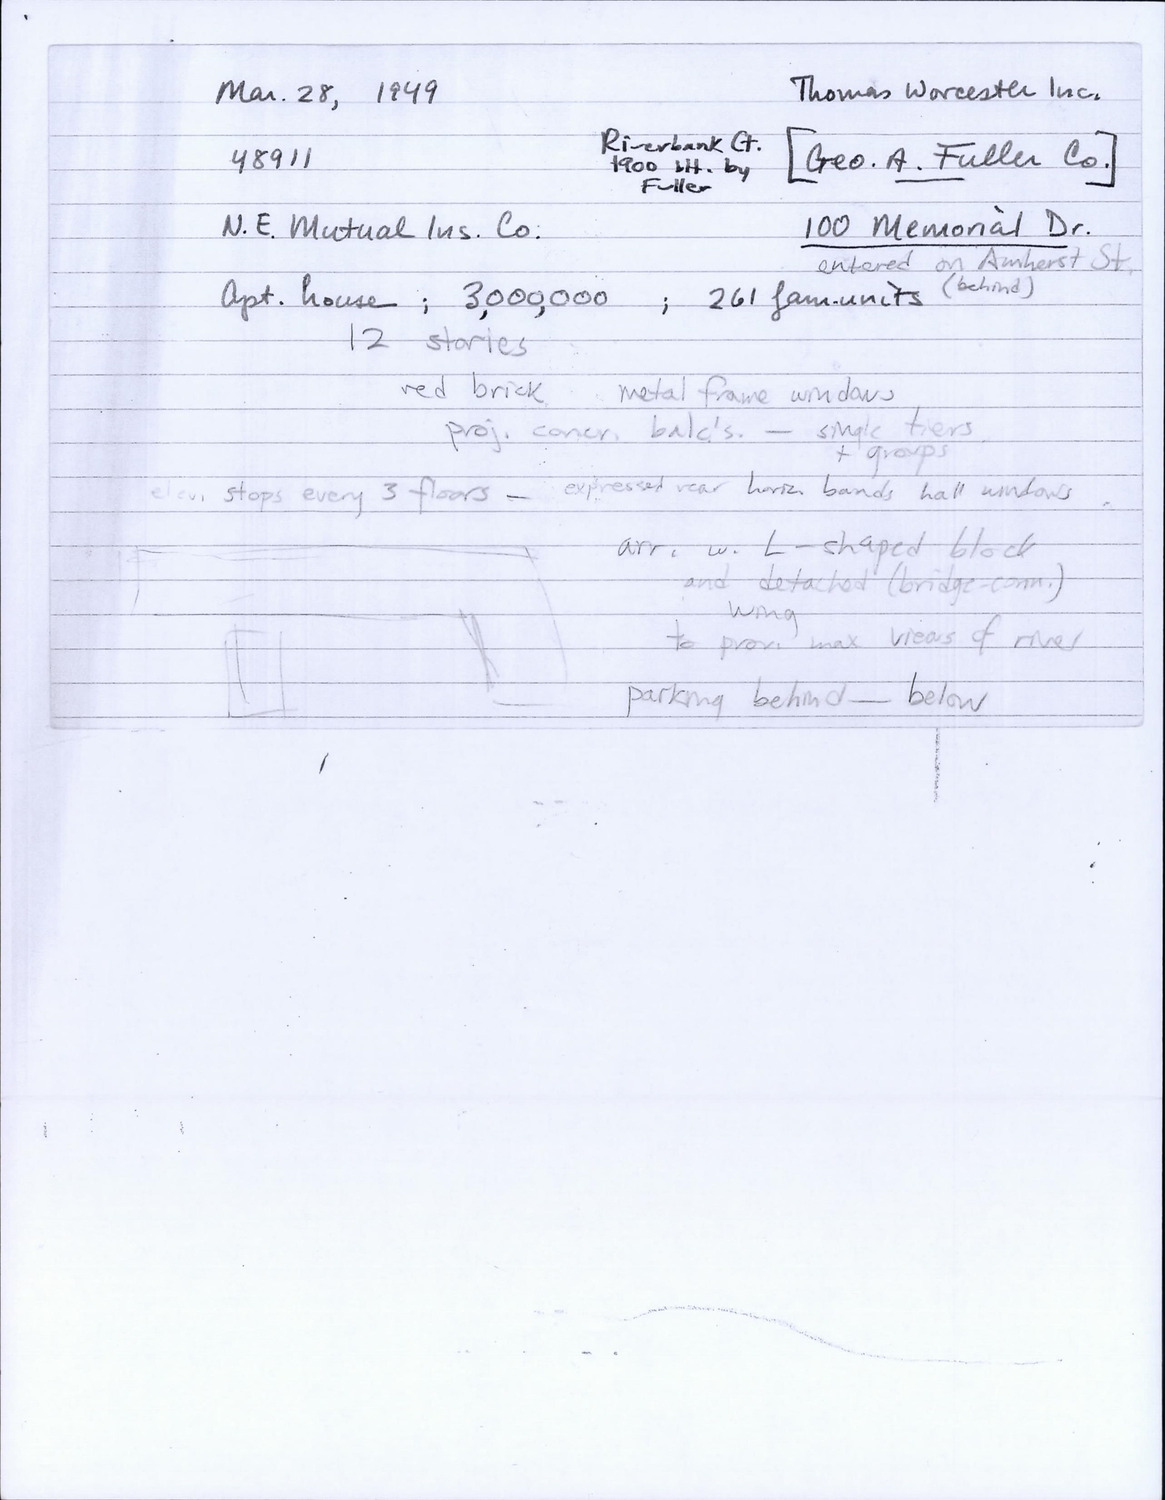 Mar. 28, 1949
Thomas Worcester Inc.
48911
Riverbank Ct.
1900 blt. by
Fuller
[Geo. A. Fuller Co.]
N.E. Mutual Ins. Co.
100 Memorial Dr.
entered on Amherst St.
(behind)
Apt. house ; 3,000,000 ; 261 fam. units
12 stories
red brick metal frame windows
proj. concr. balc's. — single tiers
+ groups
elev. stops every 3 floors — expressed rear horiz. bands hall windows
arr. w. L-shaped block
and detached (bridge-conn.)
wing
to prov. max views of river
parking behind — below